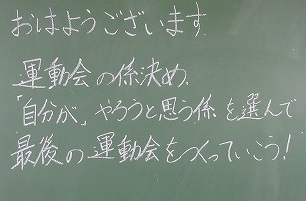 おはようございます.
運動会の係決め、
「自分が」やろうと思う係を選んで
最後の運動会をつくっていこう!